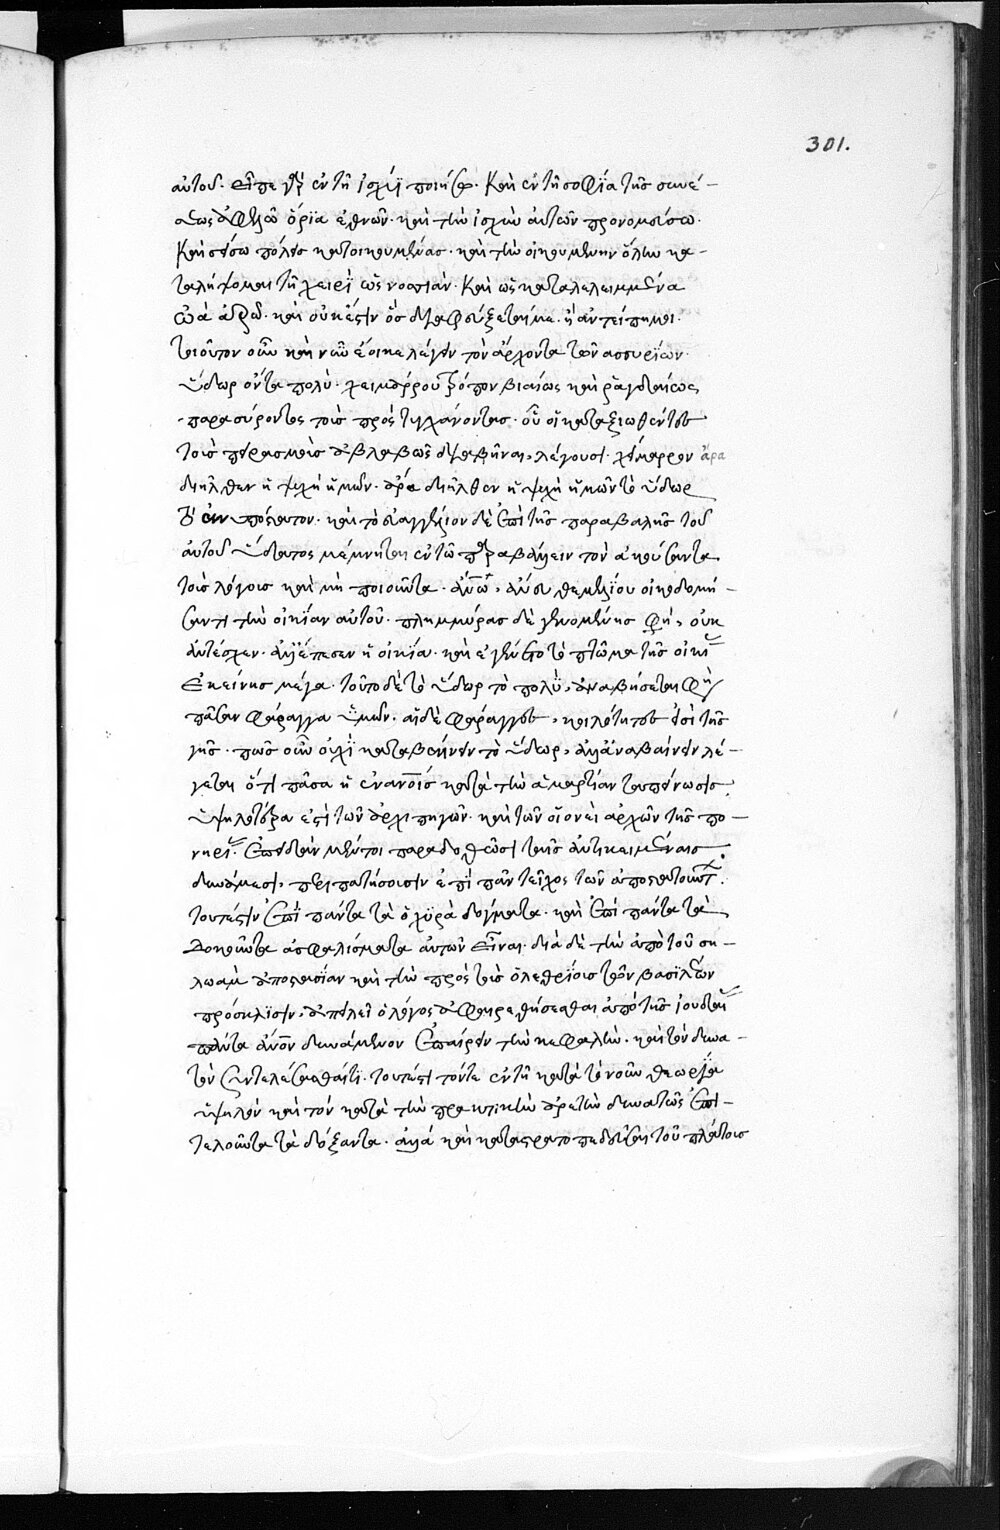 301.
αὐτοῦ. εἶπε γὰρ ἐν τῇ ἰσχύϊ ποιήσω. καὶ ἐν τῇ σοφία τῆς συνέ-
σεως ἀφελῶ ὅρια ἐθνῶν. καὶ τὴν ἰσχὺν αὐτῶν προνομεύσω.
καὶ σείσω πόλεις κατοικουμένας. καὶ τὴν οἰκουμένην ὅλην κα-
ταλήψομαι τῇ χειρὶ ὡς νοσσιάν. καὶ ὡς καταλελειμμένα
ὠὰ ἀρῶ. καὶ οὐκ ἔστιν ὃς διαφεύξεταί με. ἢ ἀντείπη μοι.
τοιοῦτον οὖν καὶ νῦν ἔοικε λέγειν τὸν ἄρχοντα τῶν ἀσσυρίων.
ὕδωρ ὄντα πολύ. χειμάρρου τρόπον βιαίως καὶ ῥαγδαίως
παρασύροντος τοὺς προστυγχάνοντας. οὗ οἱ καταξιωθέντες
τοὺς πειρασμοὺς ἀβλαβῶς διαβῆναι, λέγουσι. χείμαρρον ἄρα
διῆλθεν ἡ ψυχὴ ἡμῶν. ἄρα διῆλθεν ἡ ψυχὴ ἡμῶν τὸ ὕδωρ
τὸ ἀνυπόστατον. καὶ τὸ εὐαγγέλιον δὲ ἐπὶ τῆς παραβολῆς τοῦ
αὐτοῦ ὕδατος μέμνηται ἐν τῷ παραβάλλειν τὸν ἀκούσαντα
τοὺς λόγους καὶ μὴ ποιοῦντα. ἀνῶ, ἄνευ θεμελίου οἰκοδομή-
σαντι τὴν οἰκίαν αὐτοῦ. πλημμύρας δὲ γενομένης φη, οὐκ
ἀντέσχεν. ἀλλ' ἔπεσεν ἡ οἰκία. καὶ ἐγένετο τὸ πτῶμα τῆς οἰκί
ἐκείνης μέγα. τοῦτο δὲ τὸ ὕδωρ τὸ πολὺ, ἀναβήσεται φη
πᾶσαν φάραγγα ὑμῶν. αἱ δὲ φάραγγες, κοιλότητες εἰσὶ τῆς
γῆς. πῶς οὖν οὐχὶ καταβαίνειν τὸ ὕδωρ, ἀλλ' ἀναβαίνειν λέ-
γεται ὅτι πᾶσα ἡ ἐν ἀνοις κατὰ τὴν ἁμαρτίαν ταπείνωσις
ὑψηλοτέρα ἐστὶ τῶν ἀρχιπηγῶν. καὶ τῶν οἱονεὶ ἀρχῶν τῆς πο-
νηρί. ἐπειδὰν μέντοι παραδοθῶσι ταῖς ἀντικειμέναις
δυνάμεσι, περιπατήσουσιν ἐπὶ πᾶν τεῖχος τῶν ἀποστατούντ.
τουτέστιν ἐπὶ πάντα τὰ ὀχυρὰ δόγματα. καὶ ἐπὶ πάντα τὰ
δοκοῦντα ἀσφαλίσματα αὐτῶν εἶναι. διὰ δὲ τὴν ἀπὸ τοῦ σι-
λωὰμ ἀποστασίαν καὶ τὴν πρὸς τοὺς ὀλεθρίους τῶν βασιλέων
πρόσκλισιν, ἀπειλεῖ ὁ λόγος ἀφαιρεθήσεσθαι ἀπὸ τῆς ἰουδαί
πάντα ἄνον δυνάμενον ἐπαίρειν τὴν κεφαλὴν. καὶ τὸν δυνα-
τὸν συντελέσασθαί τι. τουτέστι τόν τε ἐν τῇ κατὰ τὸ νοῦν θεωρία
ὑψηλὸν καὶ τὸν κατὰ τὴν πρακτικὴν ἀρετὴν δυνατῶς ἐπι-
τελοῦντα τὰ δόξαντα. ἀλλὰ καὶ καταστρατοπεδεῦσαι τοῦ πλάτους